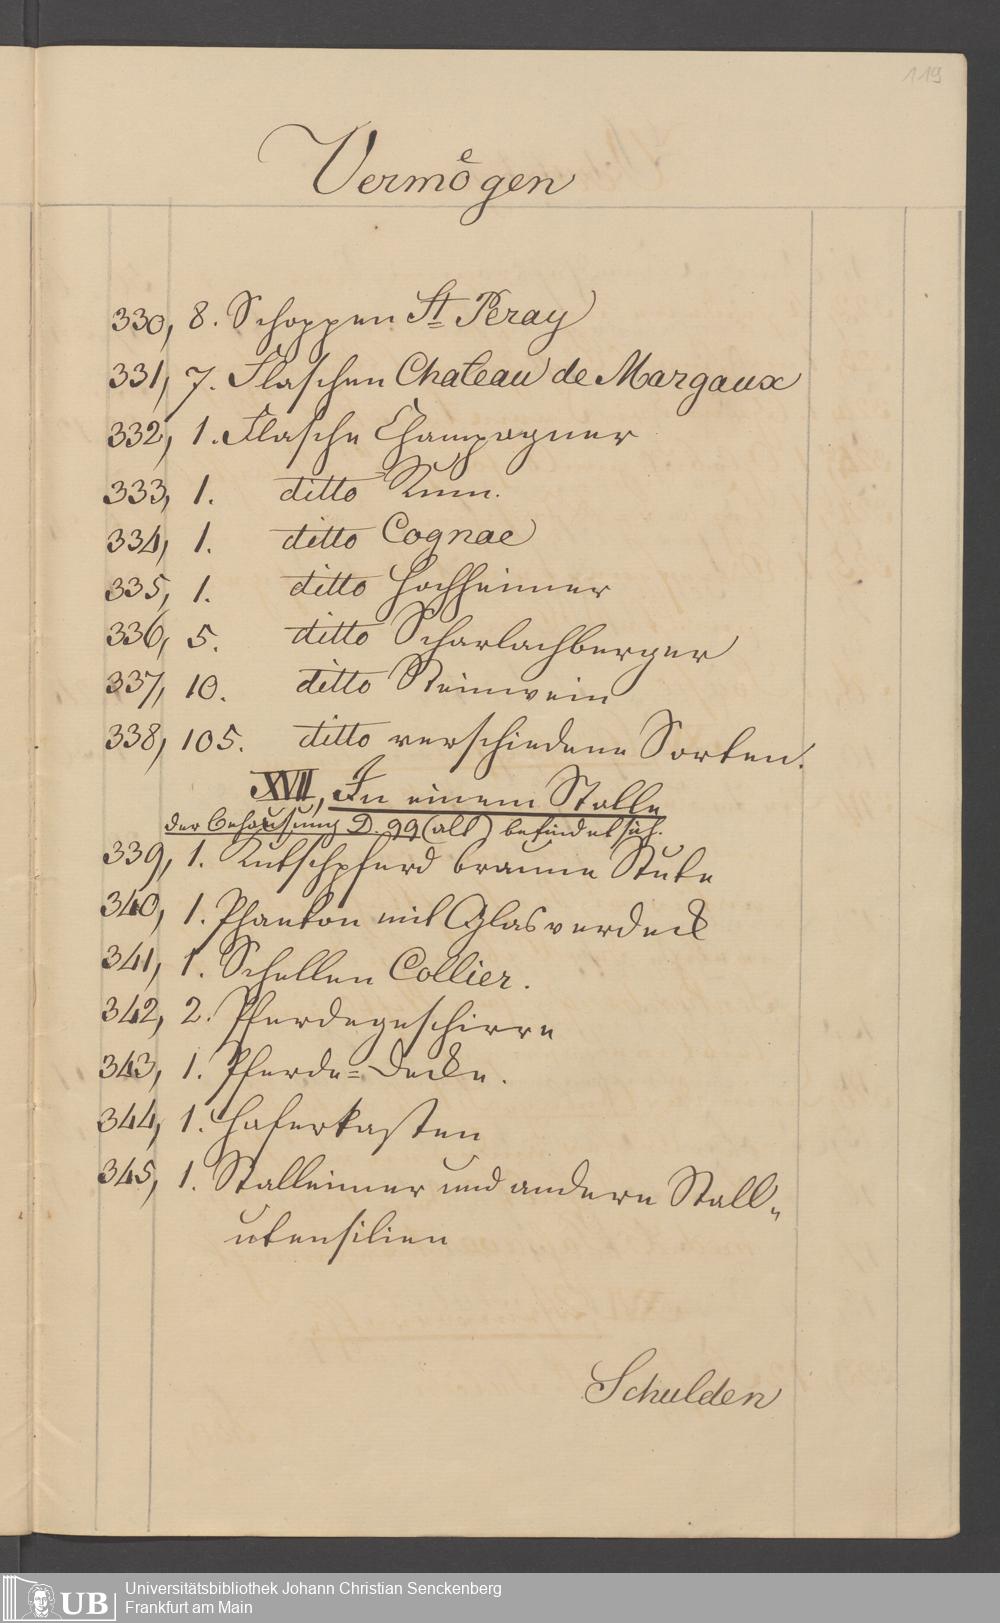 119
Vermögen
330, 8. Schoppen St Peray
331, 7. Flaschen Chateau de Margaux
332, 1. Flasche Champagner
333, 1. ditto Rum.
334, 1. ditto Cognac
335, 1. ditto Hochheimer
336, 5. ditto Scharlachberger
337, 10. ditto Steinwein
338, 105. ditto verschiedene Sorten.
XVII, In einem Stalle
der Behausung D. 99 (alt) befindet sich.
339, 1. Kutschpferd braune Stute
340, 1. Phaeton mit Glasverdeck
341, 1. Schellen Collier.
342, 2. Pferdegeschirre
343, 1. Pferde=Decke.
344, 1. Haferkasten
345, 1. Stalleimer und andere Stall„
utensilien
Schulden
UB
Universitätsbibliothek Johann Christian Senckenberg
Frankfurt am Main